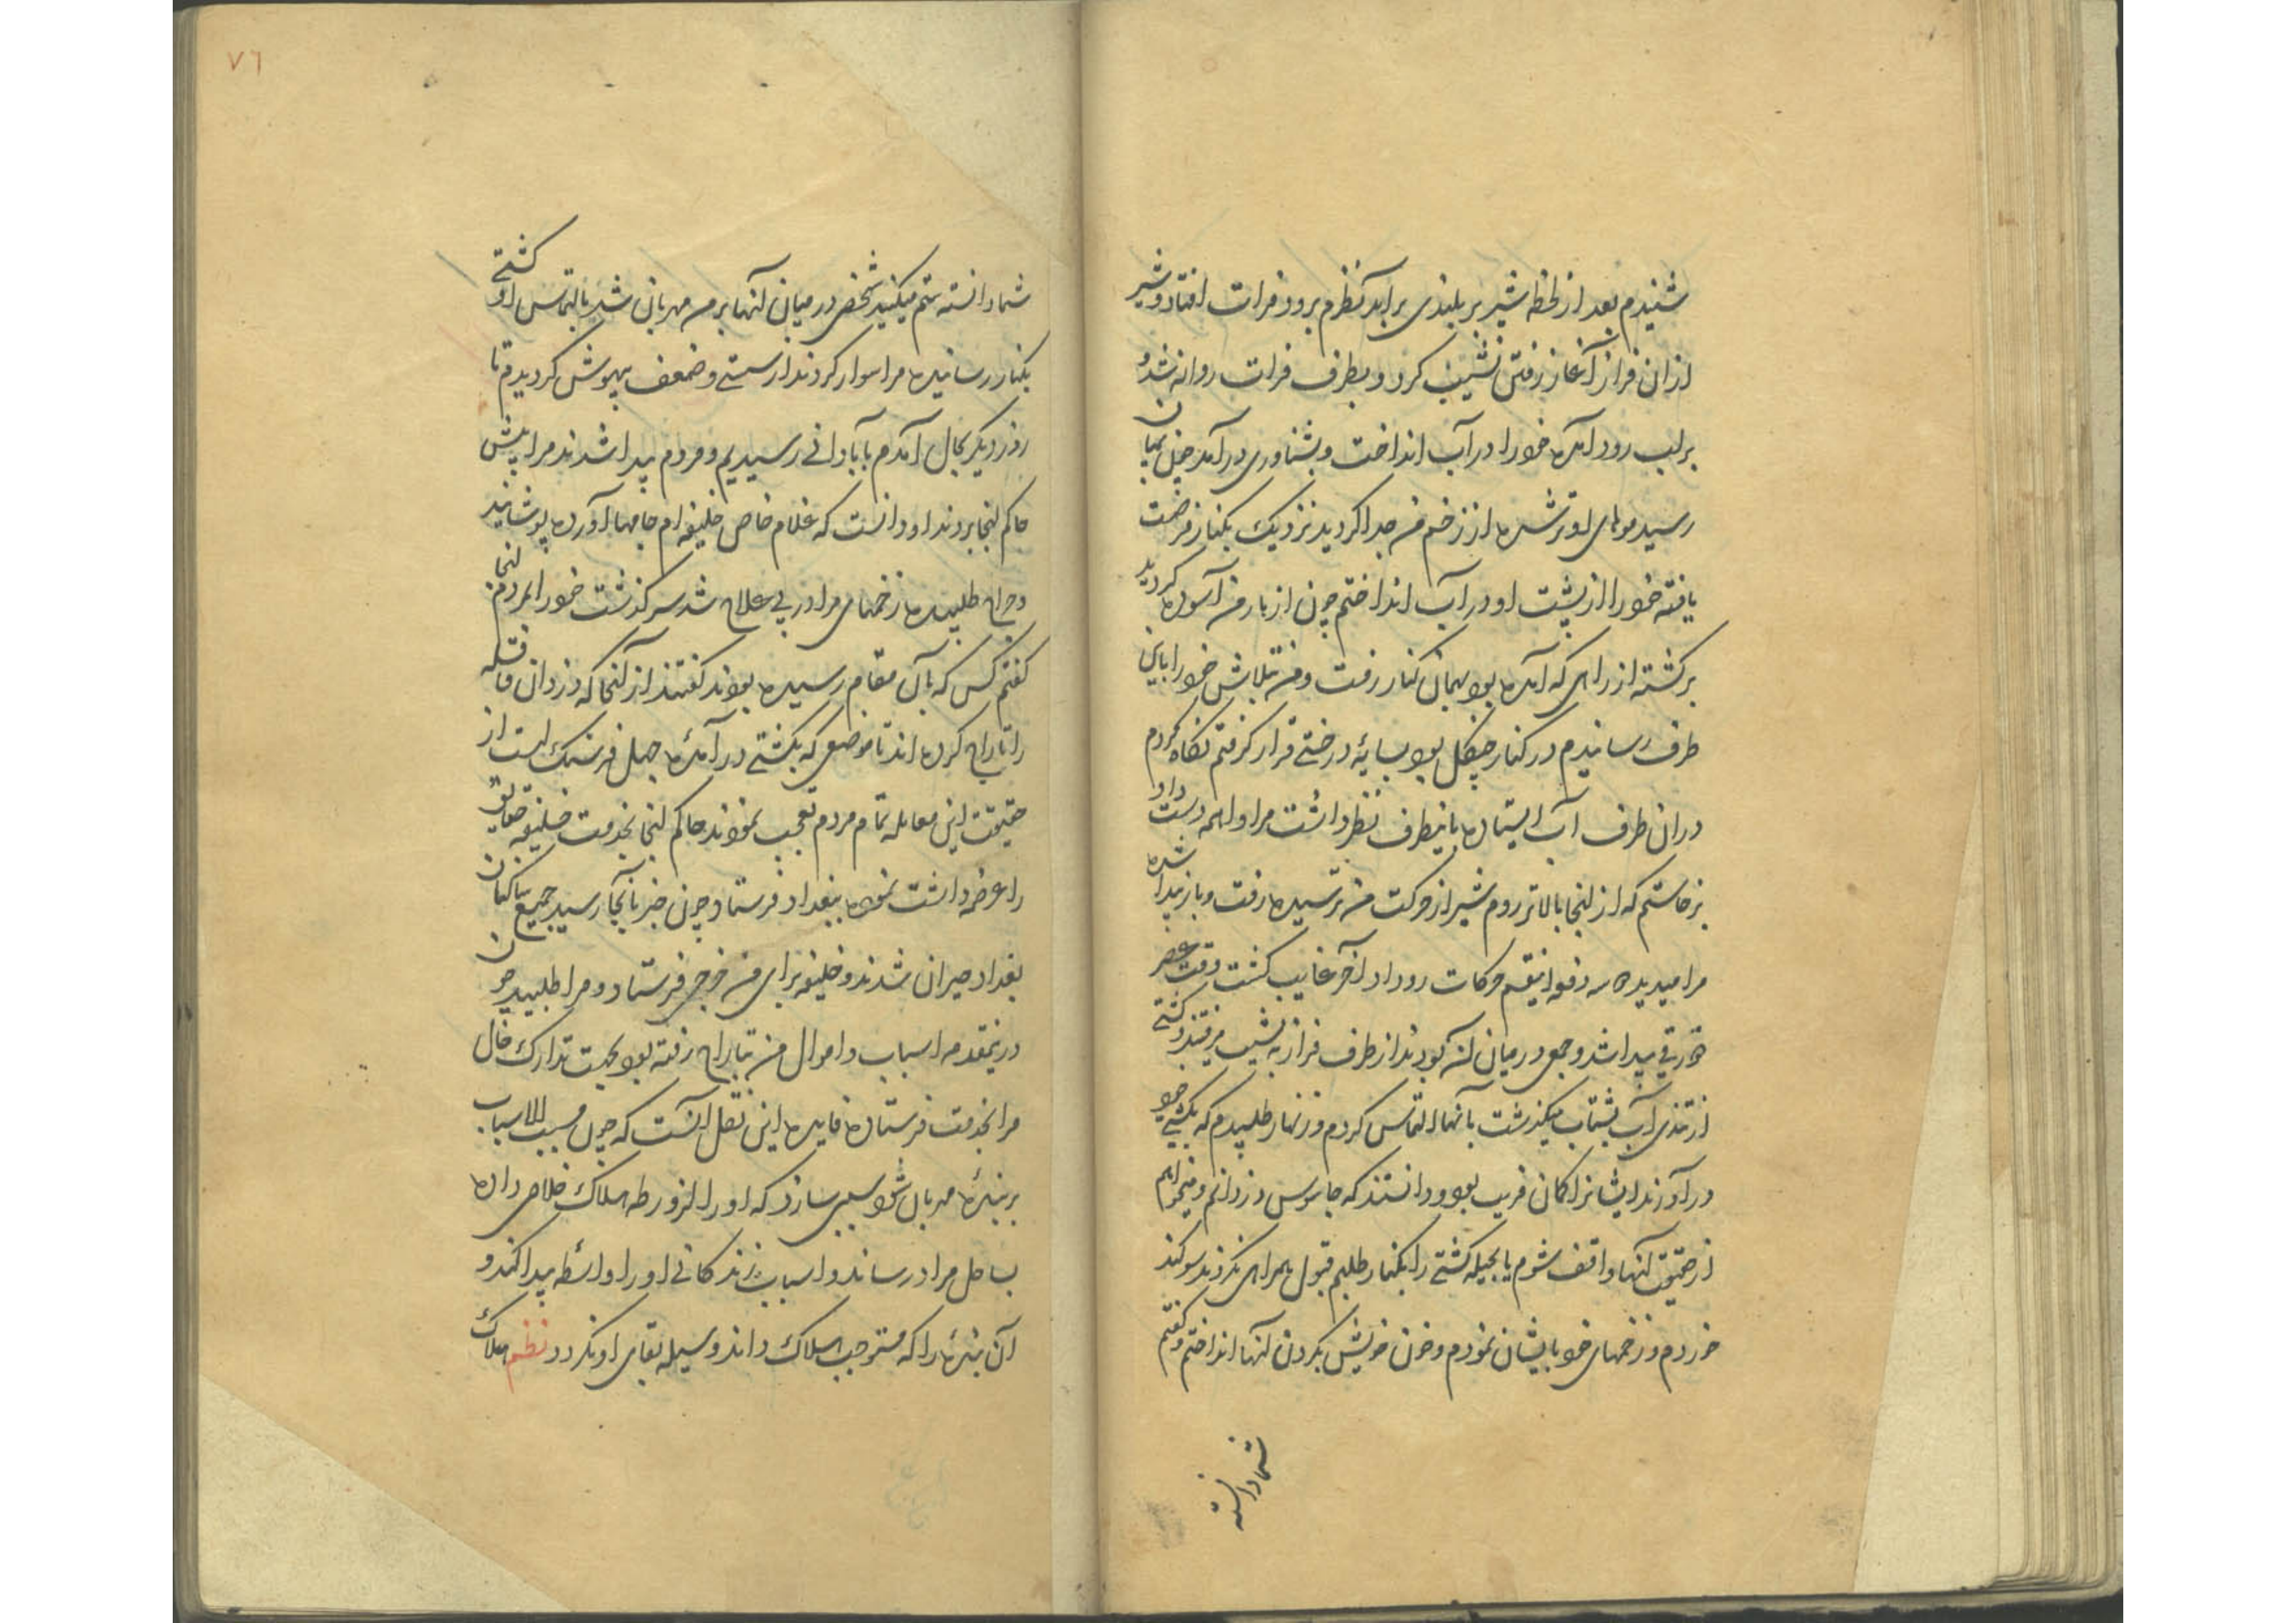 شنیدم بعد از لحظه شیر بر بلندی برآمد نظرم برود فرات افتاد و شیر
ازان فراز آغاز رفتن نشیب کرد و بطرف فرات روانه شد
بر لب رود آمده خود را در آب انداخت و بشناوری درآمد چون بمیان
رسید موهای او تر شده از زخم من جدا گردید نزدیک بکنار فرصت
یافته خود را از پشت او در آب انداختم چون از بار من آسوده گردید
برگشته از راهی که آمده بود بهمان کنار رفت و من بتلاش خود را باین
طرف رساندم در کنار جنگل بود بسایهٔ درختی قرار گرفتم نگاه کردم
دران طرف آب ایستاده باینطرف نظر داشت مرا واهمه دست داد
برخاستم که از اینجا بالاتر روم شیر از حرکت من ترسیده رفت و باز پیدا شده
مرا میدید سه دفعه اینقسم حرکات رو داد آخر غایب گشت وقت عصر
زورقی پیدا شد و جمعی در میان آن بودند از طرف فراز به نشیب میرفتند و کشتی
از تندی آب بشتاب میگذشت بآنها التماس کردم و زنهار طلبیدم که بکشتی خود
درآورند ایشانرا گمان فریب بود و دانستند که جاسوس دزدانم و میخواهم
از حقیقت آنها واقف شوم یا بحیله کشتی را بکنار طلبم قبول همراهی نکردند سوگند
خوردم و زخمهای خود بایشان نمودم و خون خویش بگردن آنها انداختم و گفتم
شما دانسته
۷۶
شما دانسته ستم میکنید شخصی درمیان آنها بر من مهربان شد بالتماس او کشتی
بکنار رسانیده مرا سوار کردند از سستی و ضعف بیهوش گردیدم تا
روز دیگر بحال آمدم بآبادانی رسیدیم و مردم پیدا شدند مرا پیش
حاکم اینجا بردند او دانست که غلام خاص خلیفه ام جامها آورده پوشانید
و جراح طلبیده زخمهای مرا در پی علاج شد سرگذشت خود را بمردم اینجا
گفتم کس که بآن مقام رسیده بودند گفتند از آنجا که دزدان قافله
را تاراج کرده اند تا موضعی که بکشتی در آمدهٔ چهل فرسنگ است از
حقیقت این معامله تمام مردم تعجب نمودند حاکم اینجا بخدمت خلیفه حقایق
را عرضه داشت نموده ببغداد فرستاد چون خبر بآنجا رسید جمیع ساکنان
بغداد حیران شدند و خلیفه برای من خرجی فرستاد و مرا طلبید چون
درینمقدمه اسباب و اموال من بتاراج رفته بود بجهت تدارک حال
مرا بخدمت فرستاده فایدهٔ این نقل آنست که چون مسبب الاسباب
بر بندهٔ مهربان شود سببی سازد که او را از ورطه هلاک خلاصی داده
بساحل مراد رساند و اسباب زندگانی او را واسطه پیدا کند و
آن بندهٔ را که مستوجب هلاک داند وسیله بقای او نگردد نظم هلاک